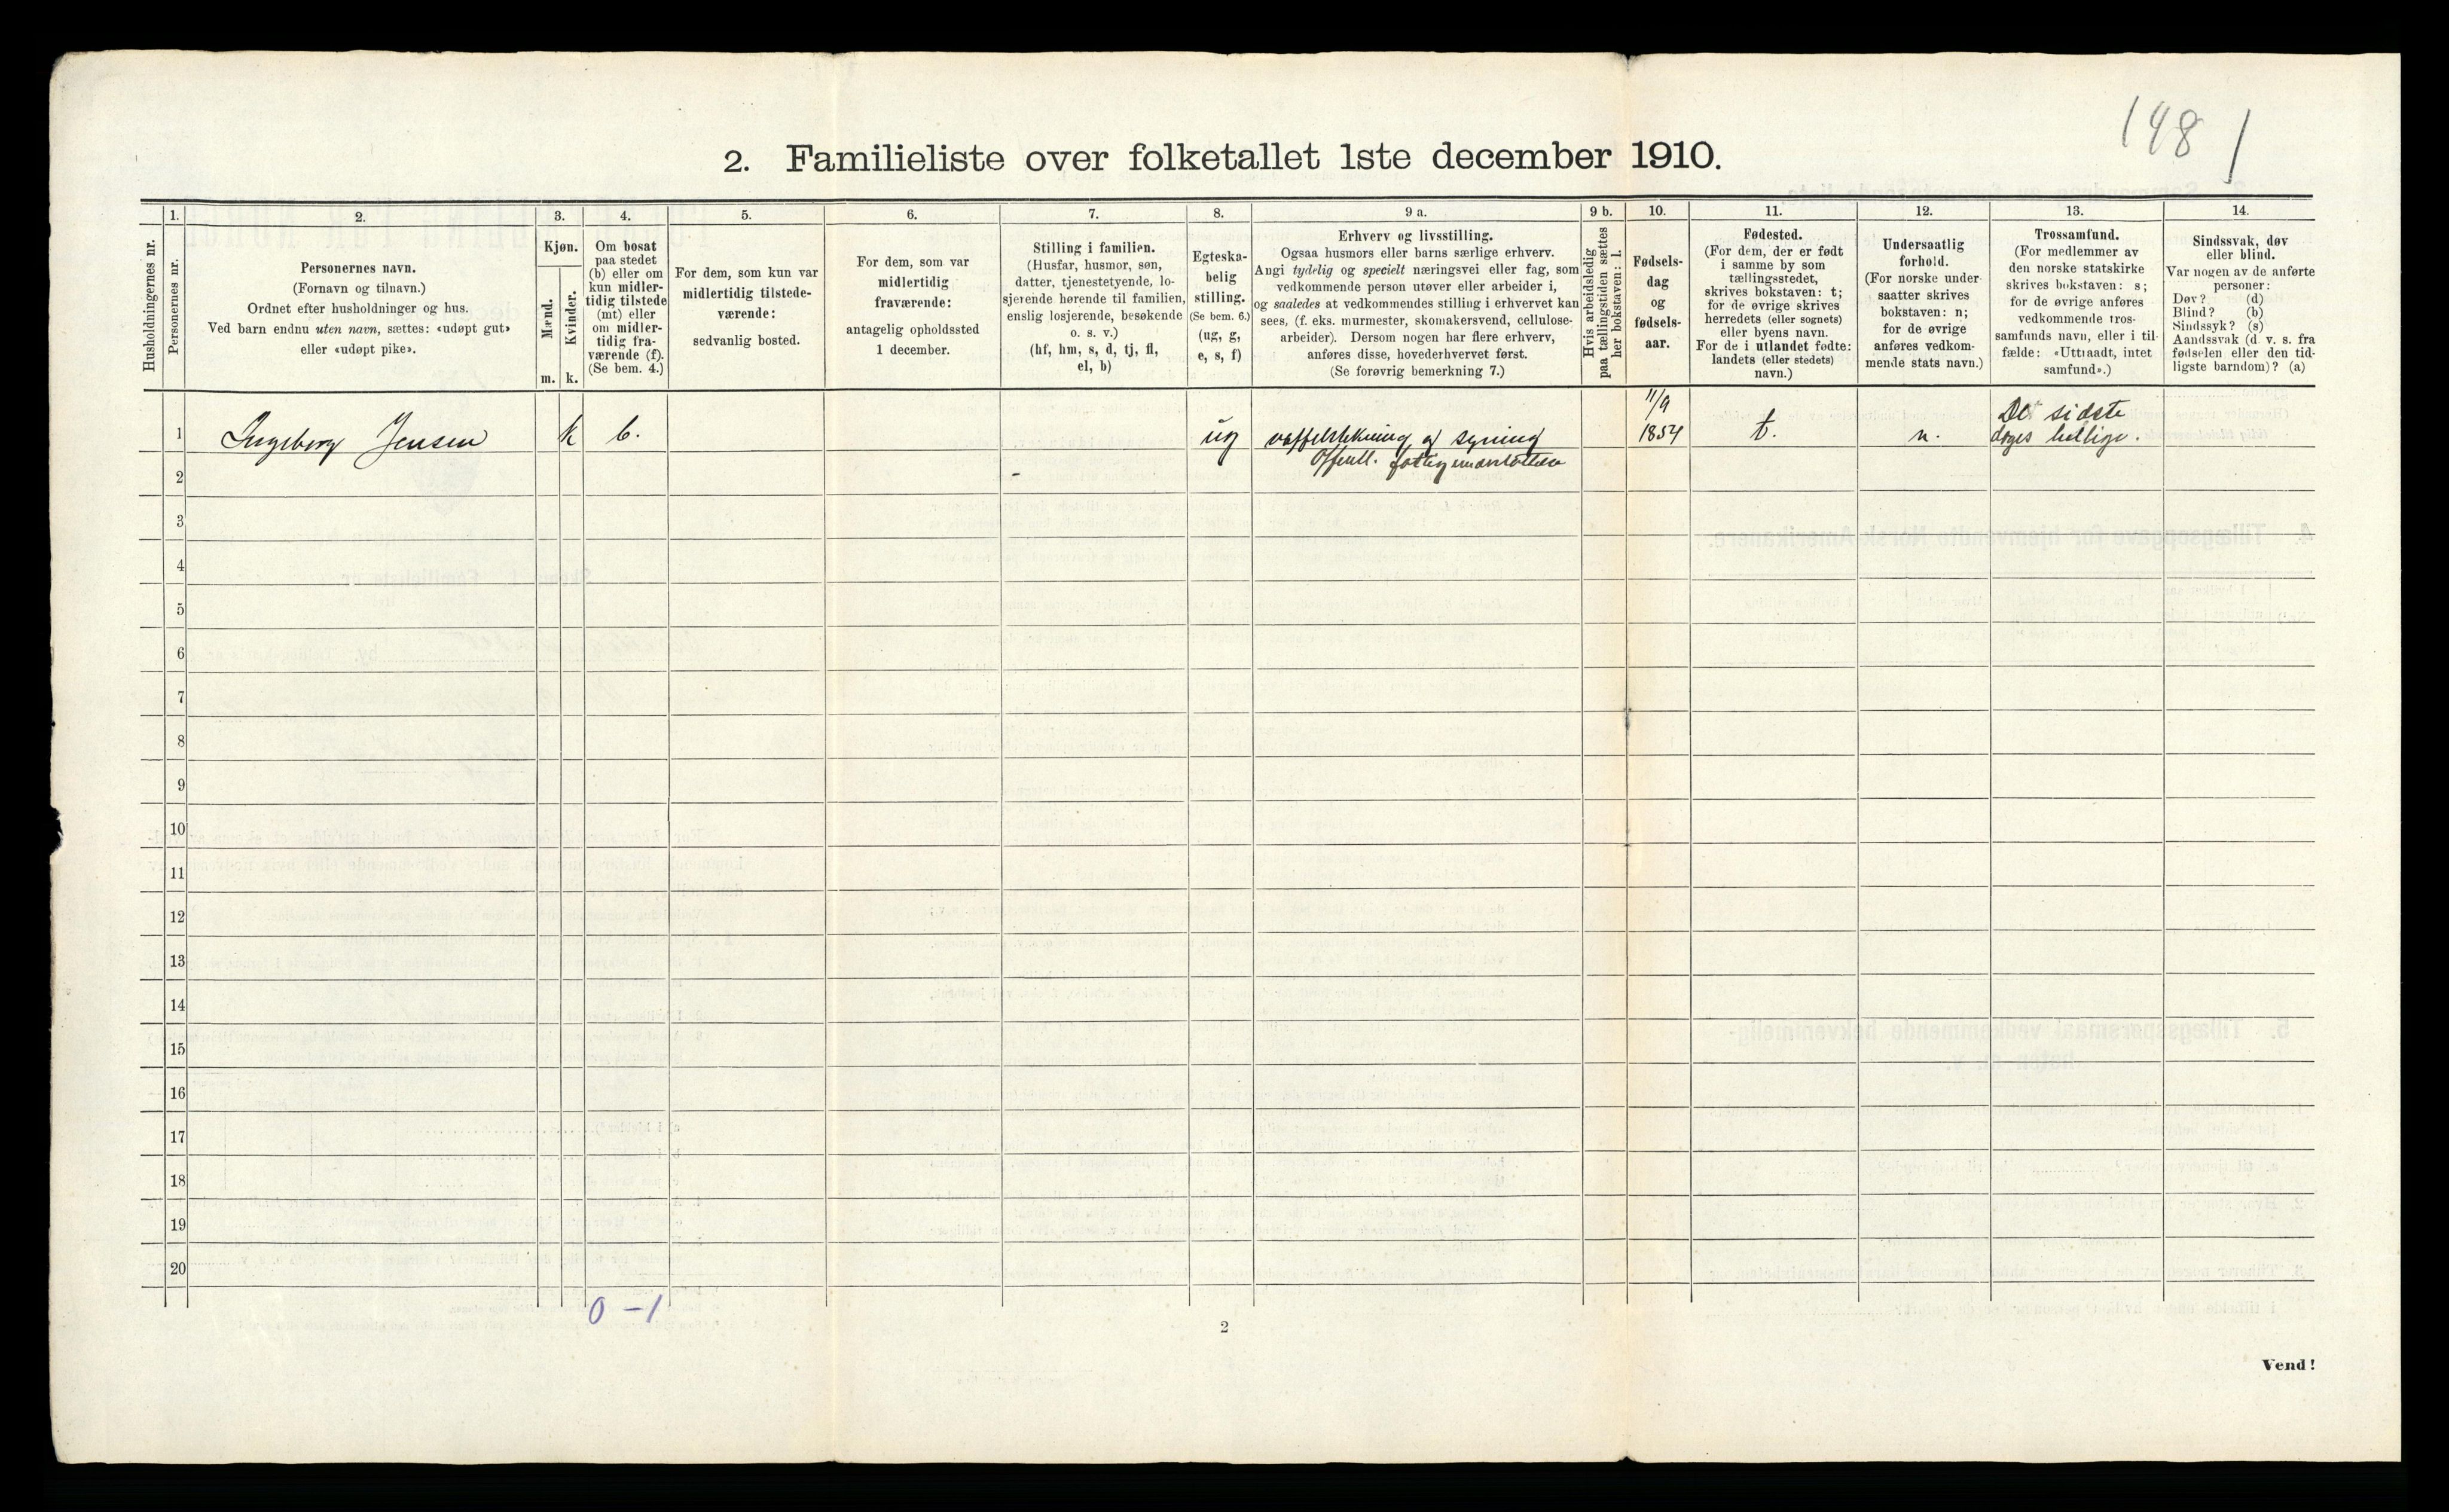 148 /
2. Familieliste over folketallet 1ste december 1910.
Husholdningernes nr.
1.
Personernes nr.
2.
Personernes navn.
(Fornavn og tilnavn.)
Ordnet efter husholdninger og hus.
Ved barn endnu uten navn, sættes: «udøpt gut»
eller «udøpt pike».
3.
Kjøn.
Mænd.
Kvinder.
m. k.
4.
Om bosat
paa stedet
(b) eller om
kun midler-
tidig tilstede
(mt) eller
om midler-
tidig fra-
værende (f).
(Se bem. 4.)
5.
For dem, som kun var
midlertidig tilstede-
værende:
sedvanlig bosted.
6.
For dem, som var
midlertidig
fraværende:
antagelig opholdssted
1 december.
7.
Stilling i familien.
(Husfar, husmor, søn,
datter, tjenestetyende, lo-
sjerende hørende til familien,
enslig losjerende, besøkende
o. s. v.)
(hf, hm, s, d, tj, fl,
el, b)
8.
Egteska-
belig
stilling.
(Se bem. 6.)
(ug, g,
e, s, f)
9 a.
Erhverv og livsstilling.
Ogsaa husmors eller barns særlige erhverv.
Angi tydelig og specielt næringsvei eller fag, som
vedkommende person utøver eller arbeider i,
og saaledes at vedkommendes stilling i erhvervet kan
sees, (f. eks. murmester, skomakersvend, cellulose-
arbeider). Dersom nogen har flere erhverv,
anføres disse, hovederhvervet først.
(Se forøvrig bemerkning 7.)
9 b.
Hvis arbeidsledig
paa tællingstiden sættes
her bokstaven: l.
10.
Fødsels-
dag
og
fødsels-
aar.
11.
Fødested.
(For dem, der er født
i samme by som
tællingsstedet,
skrives bokstaven: t;
for de øvrige skrives
herredets (eller sognets)
eller byens navn.
For de i utlandet fødte:
landets (eller stedets)
navn.)
12.
Undersaatlig
forhold.
(For norske under-
saatter skrives
bokstaven: n;
for de øvrige
anføres vedkom-
mende stats navn.)
13.
Trossamfund.
(For medlemmer av
den norske statskirke
skrives bokstaven: s;
for de øvrige anføres
vedkommende tros-
samfunds navn, eller i til-
fælde: «Uttraadt, intet
samfund».)
14.
Sindssvak, døv
eller blind.
Var nogen av de anførte
personer:
Døv? (d)
Blind? (b)
Sindssyk? (s)
Aandssvak (d. v. s. fra
fødselen eller den tid-
ligste barndom)? (a)
1 Ingeborg Jensen k b. ug vaffelstekning og syning 11/9 1854 t. n. Det sidste
dages hellige.
Offentl. fattigunderstøttelse
2
3
4
5
6
7
8
9
10
11
12
13
14
15
16
17
18
19
20
0 - 1
2
Vend!